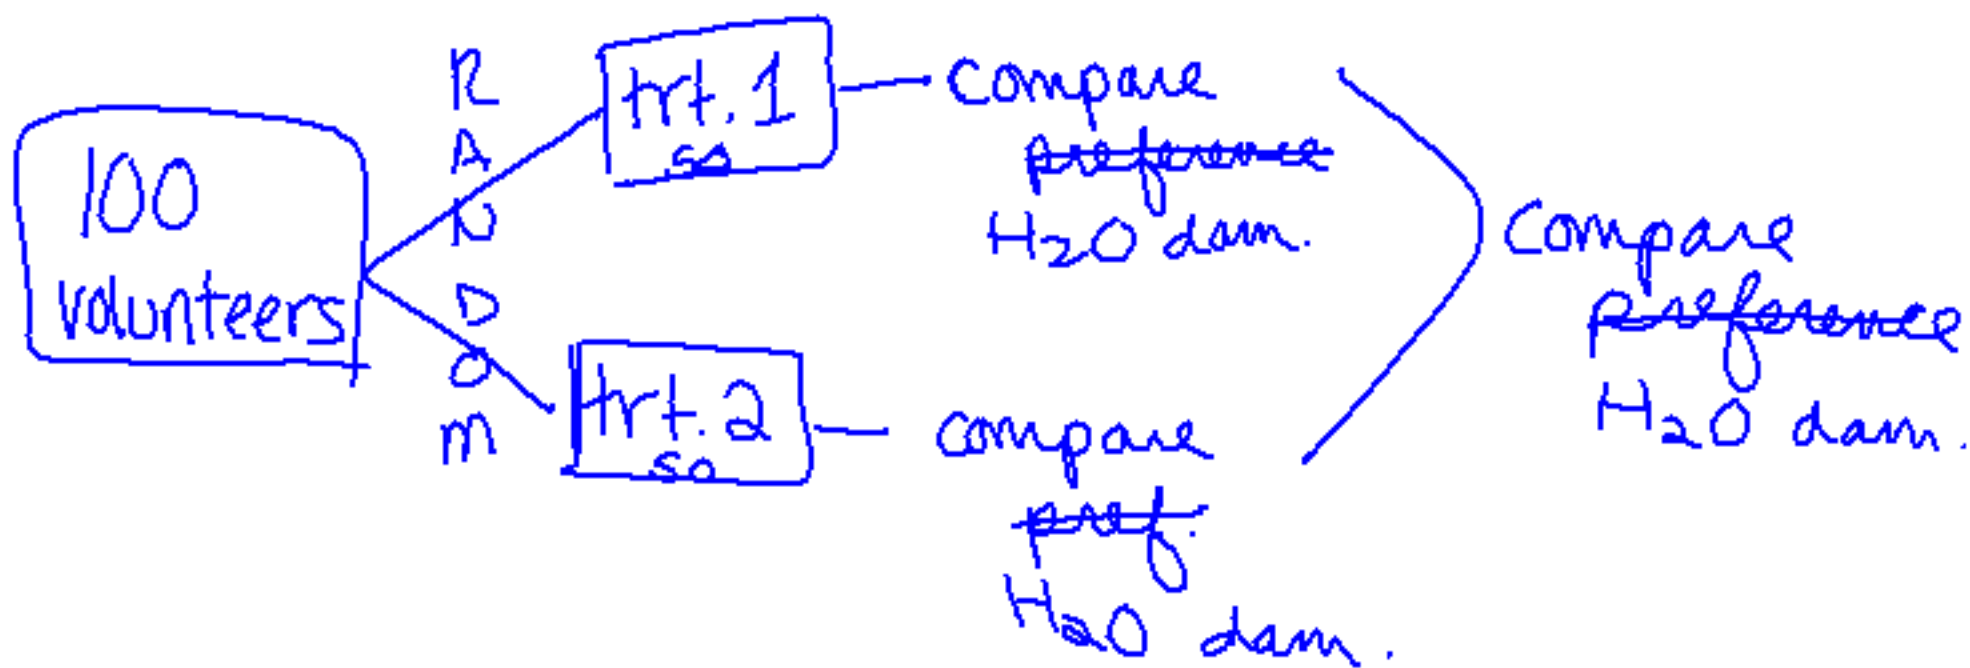 100
volunteers
RANDOM
trt. 1
50
compare
preference
H₂O dam.
trt. 2
50
compare
pref.
H₂O dam.
compare
preference
H₂O dam.